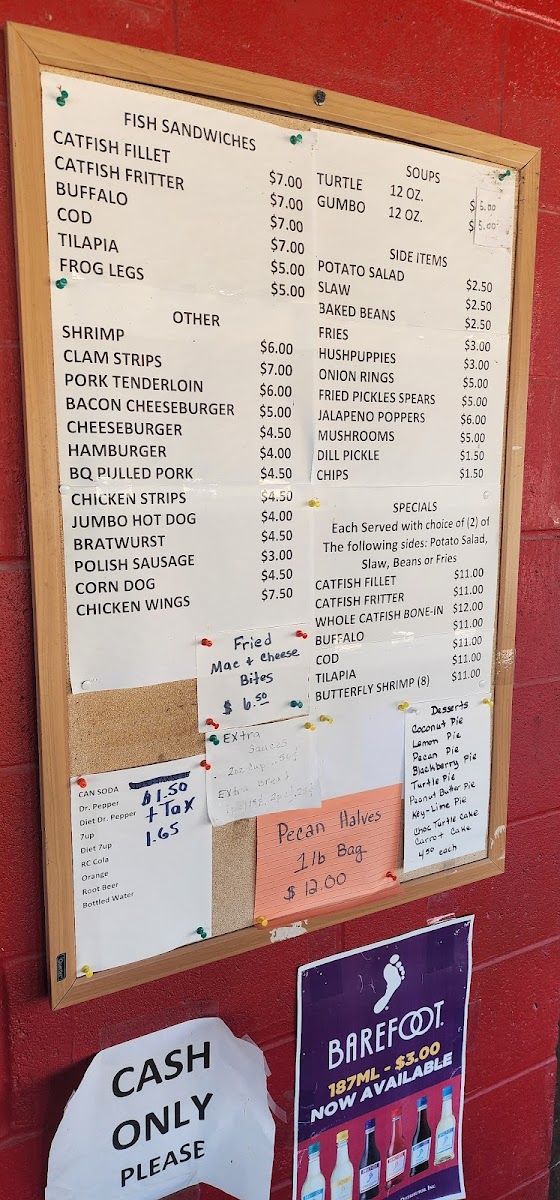 FISH SANDWICHES
CATFISH FILLET $7.00
CATFISH FRITTER $7.00
BUFFALO $7.00
COD $7.00
TILAPIA $5.00
FROG LEGS $5.00
OTHER
SHRIMP $6.00
CLAM STRIPS $7.00
PORK TENDERLOIN $6.00
BACON CHEESEBURGER $5.00
CHEESEBURGER $4.50
HAMBURGER $4.00
BQ PULLED PORK $4.50
CHICKEN STRIPS $4.50
JUMBO HOT DOG $4.00
BRATWURST $4.50
POLISH SAUSAGE $3.00
CORN DOG $4.50
CHICKEN WINGS $7.50
SOUPS
TURTLE 12 OZ. $5.00
GUMBO 12 OZ. $5.00
SIDE ITEMS
POTATO SALAD $2.50
SLAW $2.50
BAKED BEANS $2.50
FRIES $3.00
HUSHPUPPIES $3.00
ONION RINGS $5.00
FRIED PICKLES SPEARS $5.00
JALAPENO POPPERS $6.00
MUSHROOMS $5.00
DILL PICKLE $1.50
CHIPS $1.50
SPECIALS
Each Served with choice of (2) of
The following sides: Potato Salad,
Slaw, Beans or Fries
CATFISH FILLET $11.00
CATFISH FRITTER $11.00
WHOLE CATFISH BONE-IN $12.00
BUFFALO $11.00
COD $11.00
TILAPIA $11.00
BUTTERFLY SHRIMP (8) $11.00
Fried
Mac + Cheese
Bites
$ 6.50
Extra
Sauces
2oz Cup
Extra
CAN SODA
Dr. Pepper
Diet Dr. Pepper
7up
Diet 7up
RC Cola
Orange
Root Beer
Bottled Water
$1.50
+ Tax
1.65
Pecan Halves
1 lb Bag
$ 12.00
Desserts
Coconut Pie
Lemon Pie
Pecan Pie
Blackberry Pie
Turtle Pie
Peanut Butter Pie
Key-Lime Pie
Choc Turtle Cake
Carrot Cake
4.50 each
CASH
ONLY
PLEASE
BAREFOOT
187ML - $3.00
NOW AVAILABLE